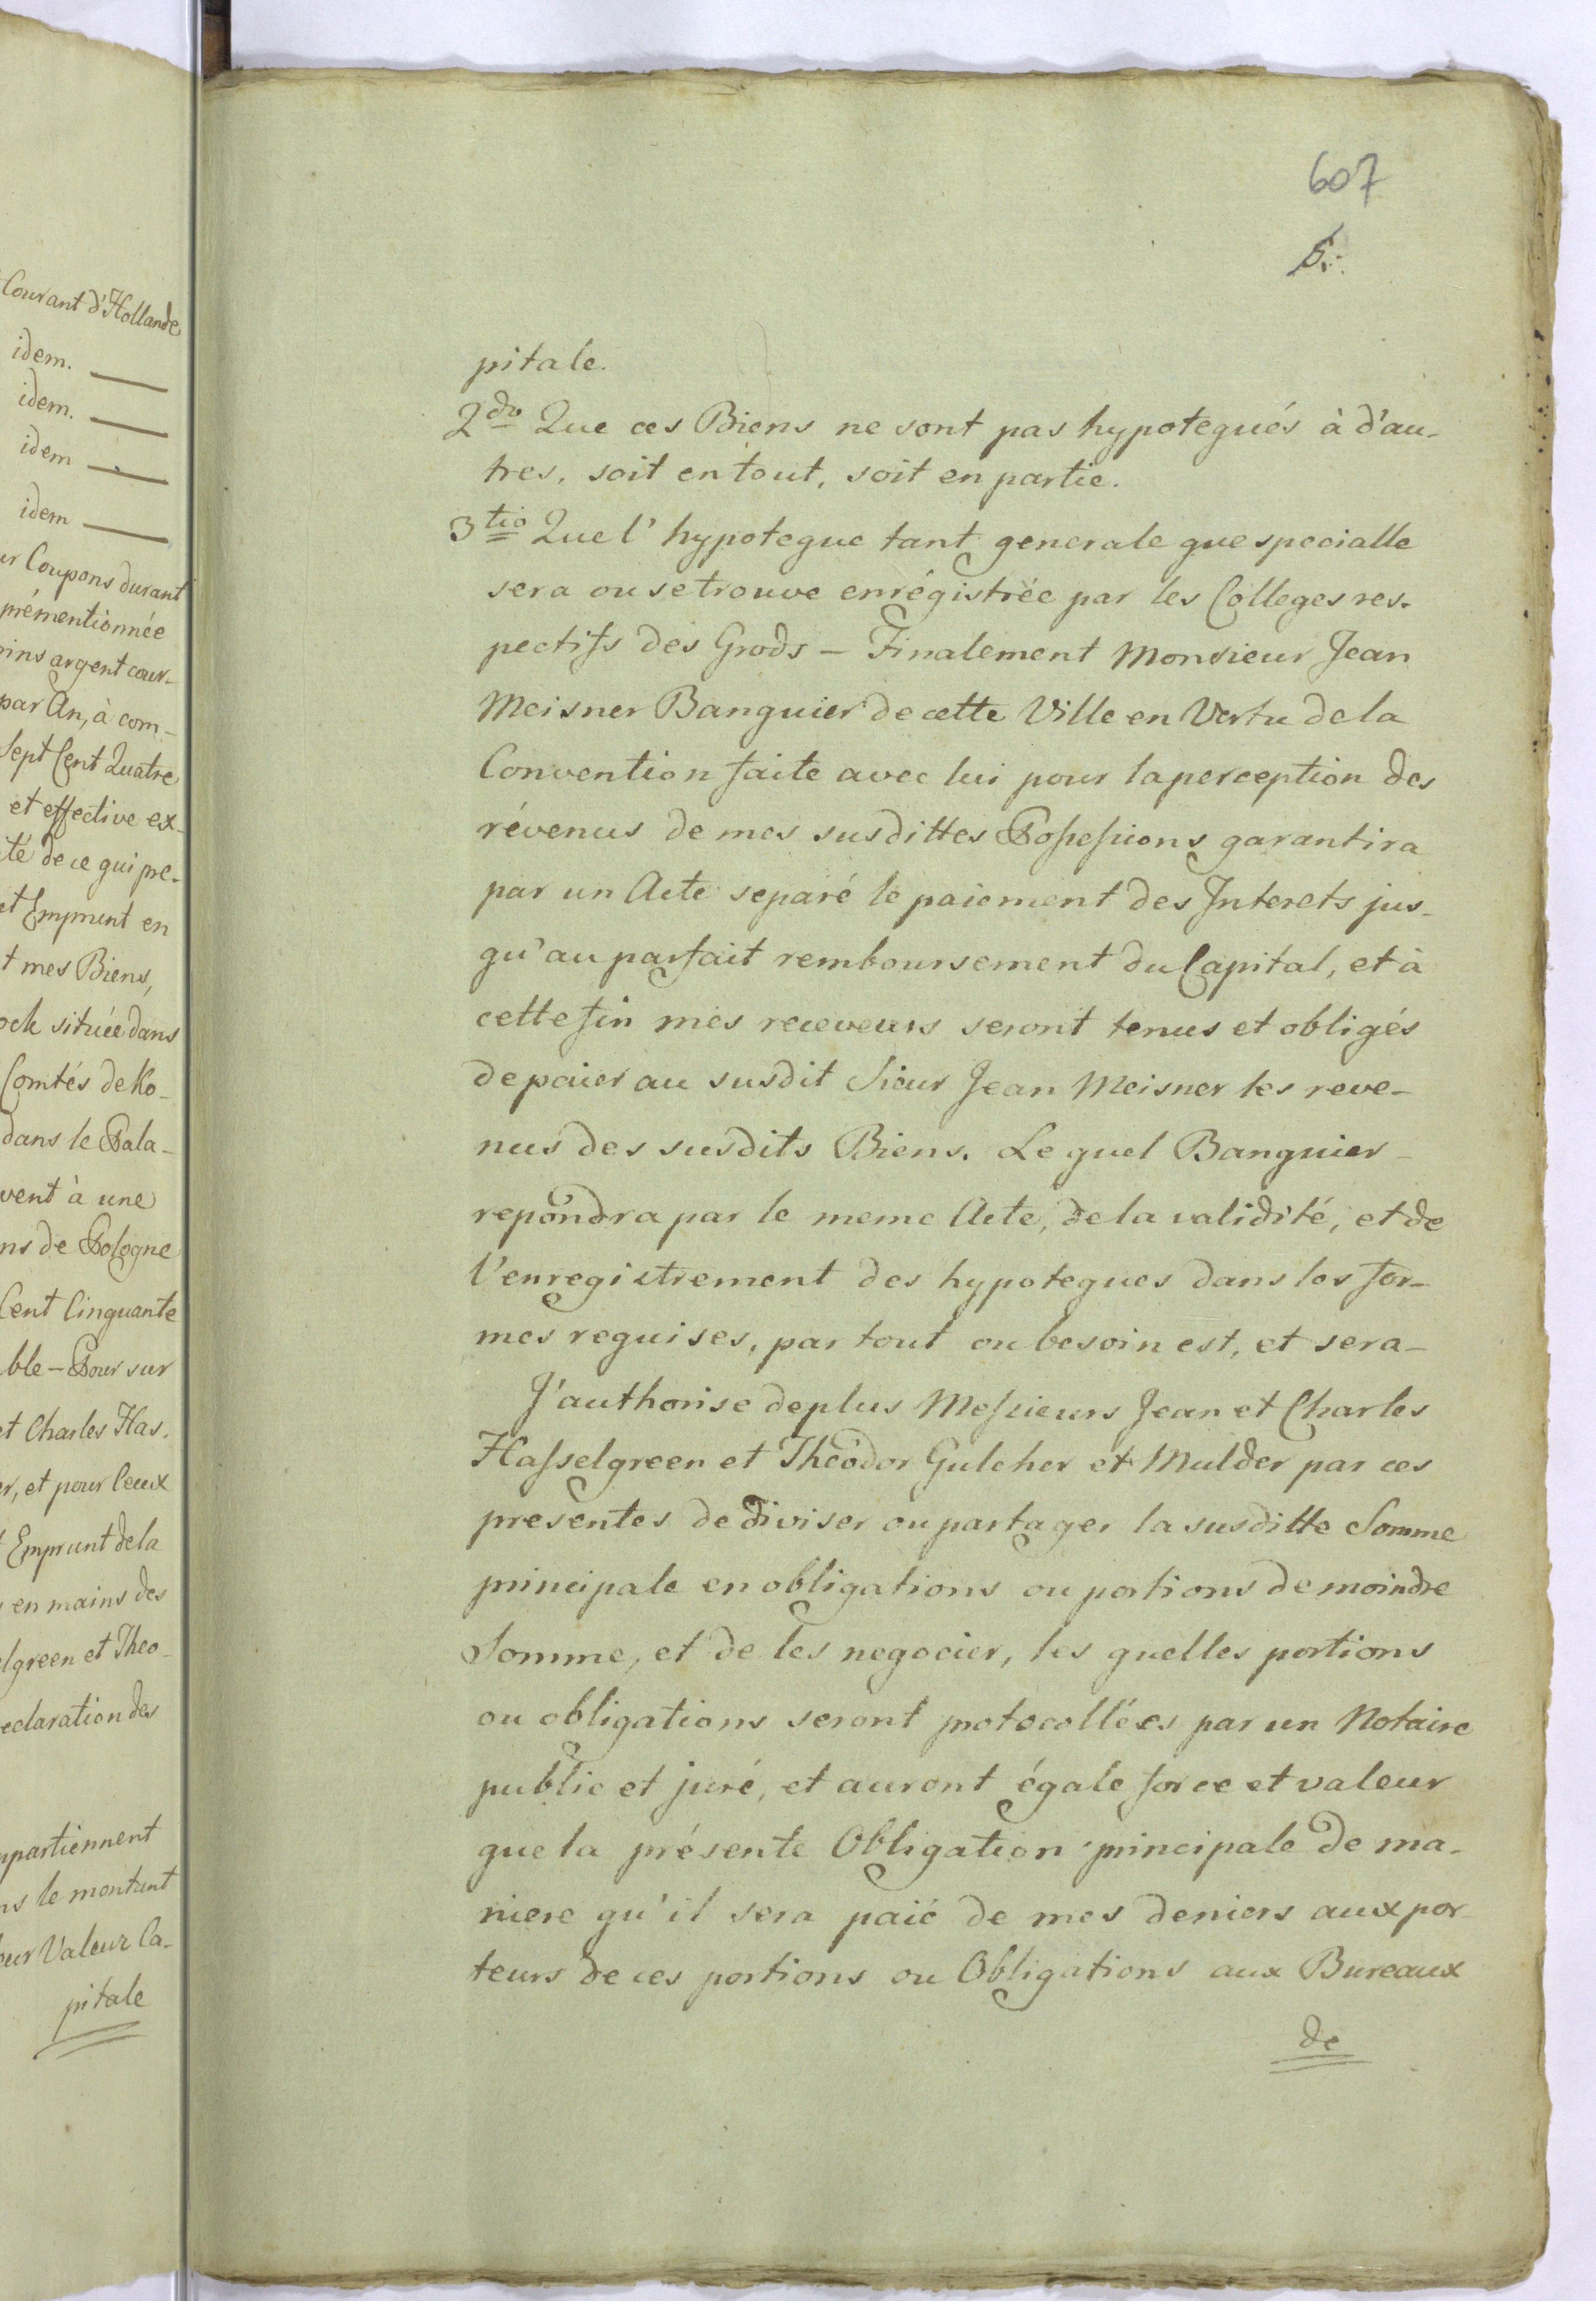 Courant d'Hollande
idem.
idem.
idem
idem
Coupons durant
prémentionnée
argent cour-
par An, à com-
Sept Cent Quatre
et effective ex-
té de ce qui pre-
et Emprunt en
mes Biens,
située dans
Comtés de Ko-
dans le Pala-
vent à une
de Pologne
Cent Cinquante
ble – Pour sur
et Charles Has.
et pour Ceux
Emprunt de la
en mains des
lgreen et Theo-
eclaration des
partiennent
le montant
Valeur Ca-
pitale
607
5.
pitale.
2do Que ces Biens ne sont pas hypotequés à d'au-
tres, soit en tout, soit en partie.
3tio Que l'hypoteque tant generale que specialle
sera ou se trouve enrégistrée par les Colleges res-
pectifs des Grods – Finalement Monsieur Jean
Meisner Banquier de cette Ville en Vertu de la
Convention faite avec lui pour la perception des
révenus de mes susdittes Possessions garantira
par un Acte separé le paiement des Interets jus-
qu'au parfait remboursement du Capital, et à
cette fin mes receveurs seront tenus et obligés
de paier au susdit Sieur Jean Meisner les reve-
nus des susdits Biens. Le quel Banquier –
repondra par le meme Acte, de la validité, et de
l'enregistrement des hypoteques dans les for-
mes requises, par tout ou besoin est, et sera –
J'authorise de plus Messieurs Jean et Charles
Hasselgreen et Théodor Gulcher et Mulder par ces
presentes de diviser ou partager la susditte Somme
principale en obligations ou portions de moindre
Somme, et de les negocier, les quelles portions
ou obligations seront protocollées par un Notaire
public et juré, et auront égale force et valeur
que la présente Obligation principale de ma-
niere qu'il sera paié de mes deniers aux por-
teurs de ces portions ou Obligations aux Bureaux
de